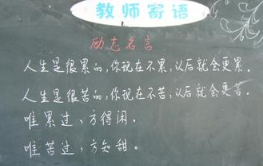 教师寄语
励志名言
人生是很累的,你现在不累,以后就会更累。
人生是很苦的,你现在不苦,以后就会更苦。
唯累过,方得闲,
唯苦过,方知甜。